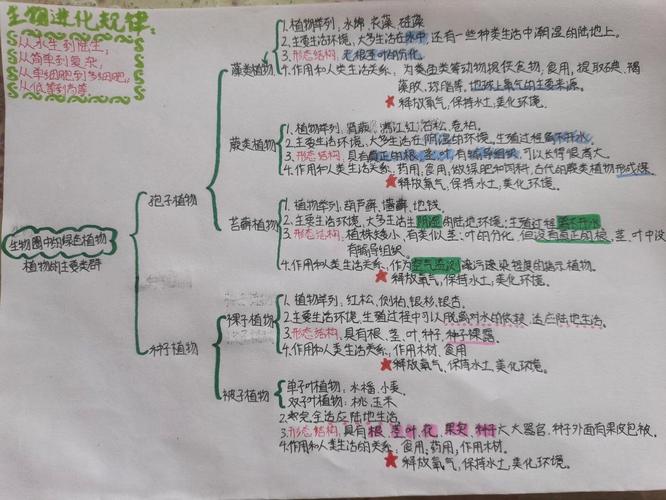 生物进化规律:
从水生到陆生,
从简单到复杂,
从单细胞到多细胞,
从低等到高等
生物圈中的绿色植物
植物的主要类群
孢子植物
藻类植物
1.植物举例,水绵、衣藻、硅藻
2.主要生活环境,大多生活在水中,还有一些种类生活中潮湿的陆地上。
3.形态结构,无根茎叶的分化。
4.作用和人类生活关系,为鱼类等动物提供食物,食用,提取碘、褐
藻胶、琼脂等,地球上氧气的主要来源。
★释放氧气,保持水土,美化环境。
蕨类植物
1.植物举例,肾蕨、满江红,石松、卷柏。
2.主要生活环境,大多生活在阴湿的环境,生殖过程离不开水。
3.形态结构,具有真正的根、茎、叶,有输导组织,可以长得很高大。
4.作用和人类生活关系,药用,食用,做绿肥和饲料,古代的蕨类植物形成煤。
★释放氧气,保持水土,美化环境。
苔藓植物
1.植物举例,葫芦藓、墙藓、地钱。
2.主要生活环境,大多生活生阴湿的陆地环境;生殖过程离不开水
3.形态结构,植株矮小,有类似茎、叶的分化,但没有真正的根,茎、叶中没
有输导组织。
4.作用和人类生活关系,作为空气监测污染程度的指示植物。
★释放氧气,保持水土,美化环境。
种子植物
裸子植物
1.植物举例,红松、侧柏、银杉、银杏。
2.主要生活环境,生殖过程中可以脱离对水的依赖,适应陆地生活。
3.形态结构,具有根、茎、叶、种子,种子裸露。
4.作用和人类生活关系,作用木材,食用
★释放氧气,保持水土,美化环境。
被子植物
单子叶植物:水稻、小麦。
双子叶植物:桃、玉米
2.完全适应陆地生活
3.形态结构,具有根、茎、叶、花、果实、种子六大器官,种子外面有果皮包被。
4.作用和人类生活的关系:食用,药用,作用木材。
★释放氧气,保持水土,美化环境。